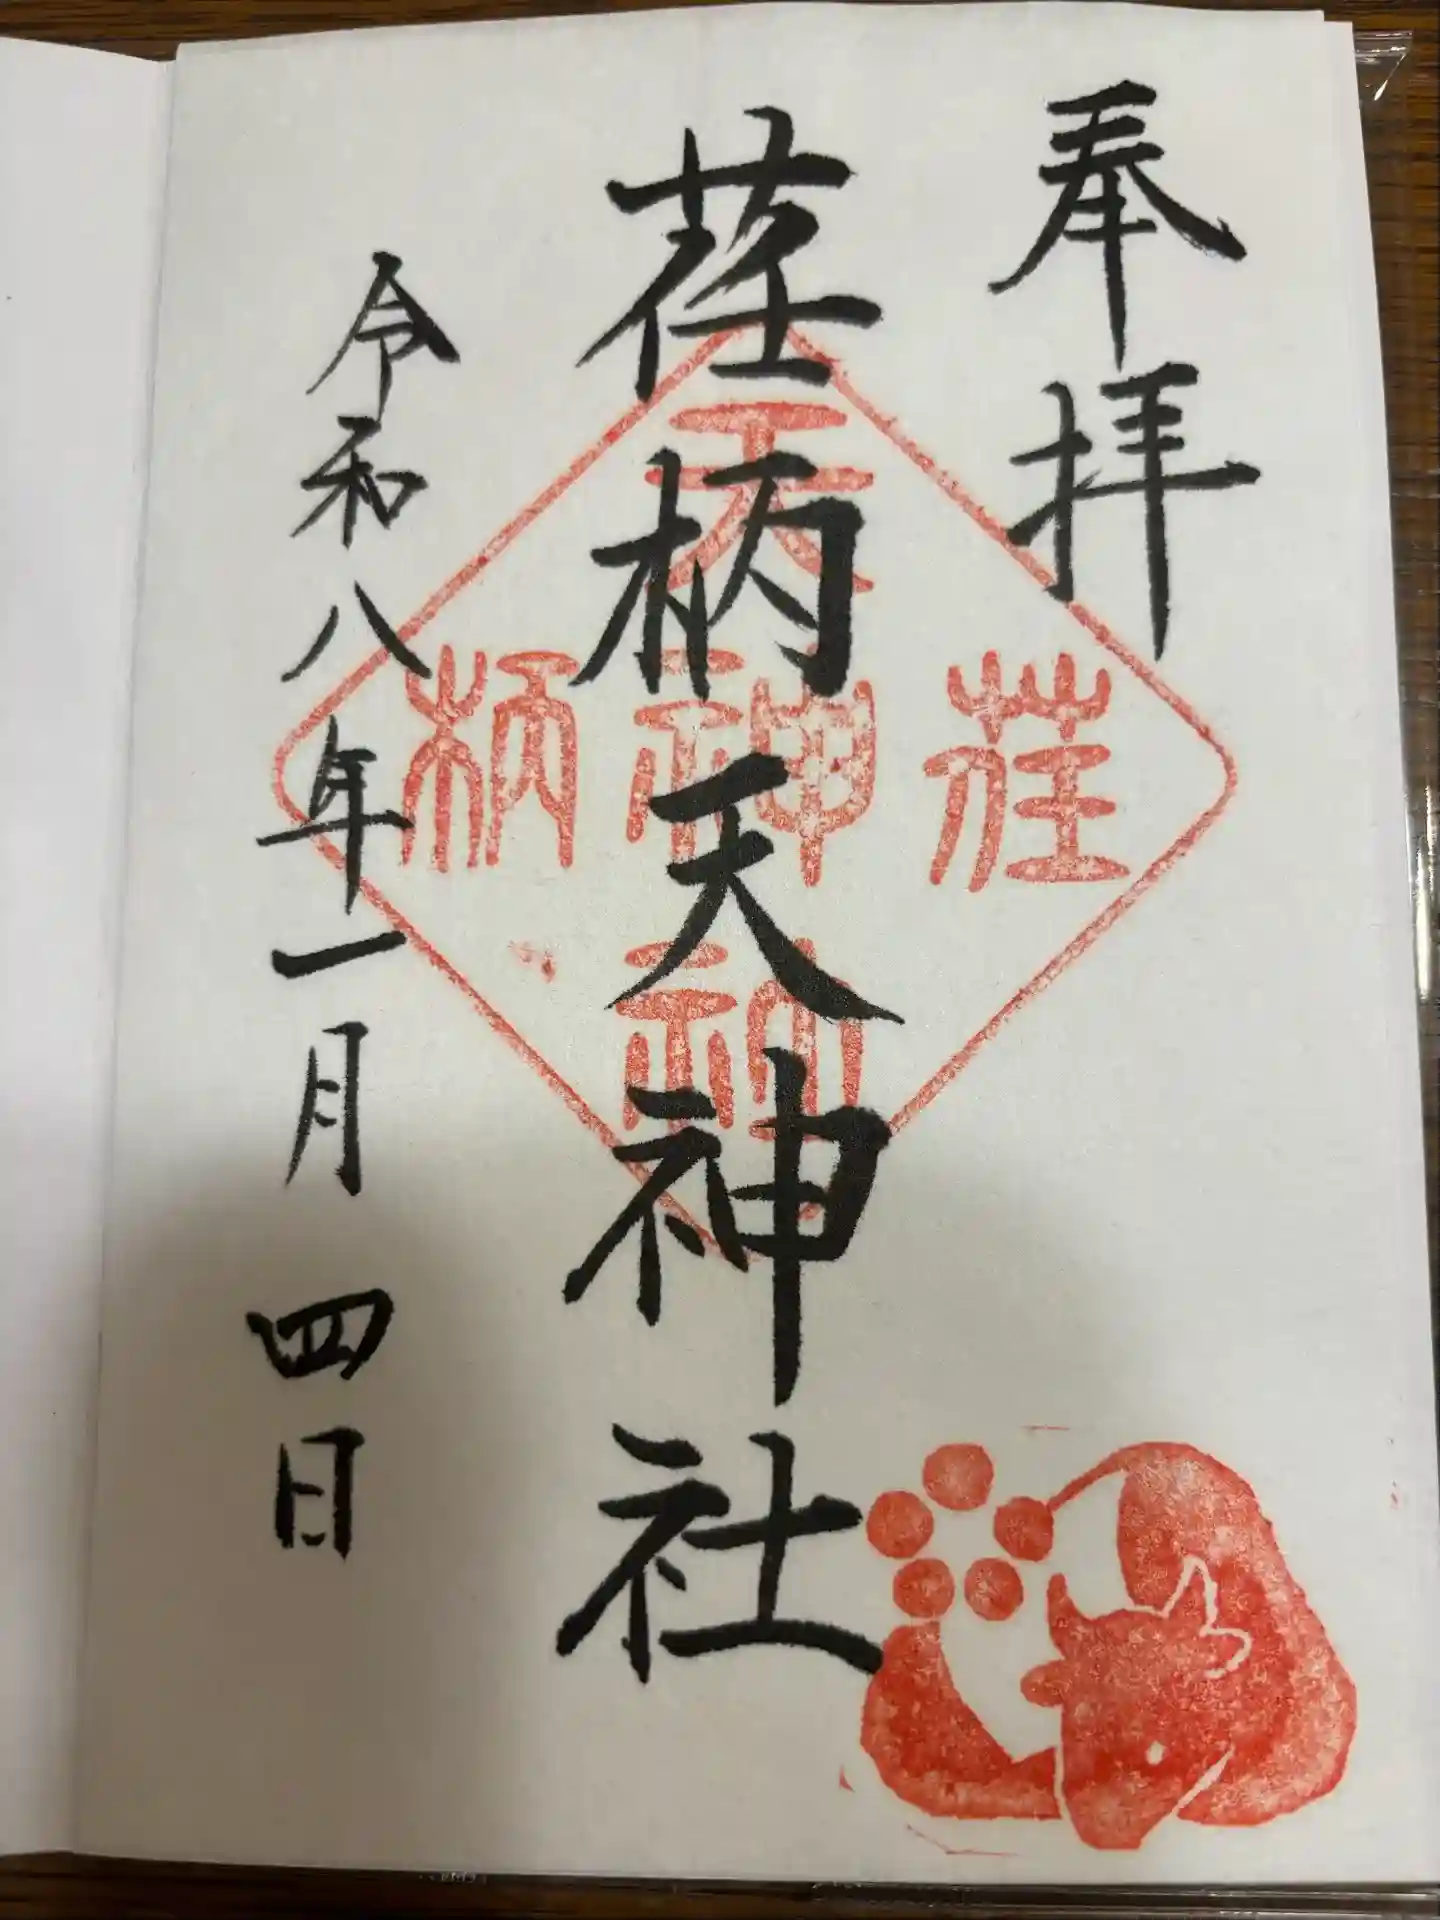 奉拝
荏柄天神社
令和八年一月四日
天
荏
神
柄
社